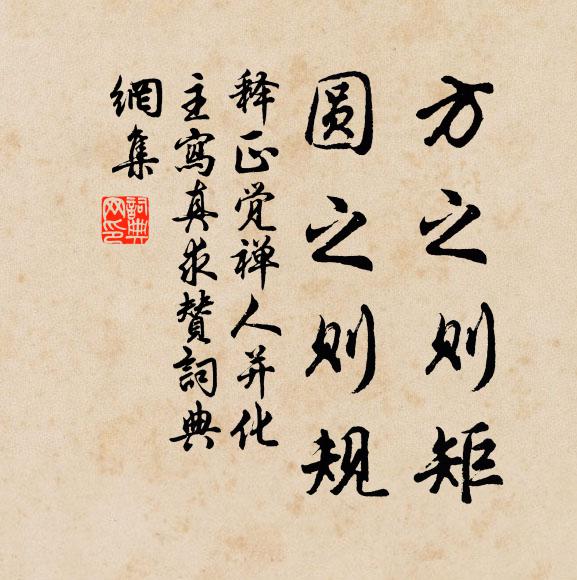 方之则矩
圆之则规
释正觉禅人并化
主寫真求赞詞典
網集
詞典
网印